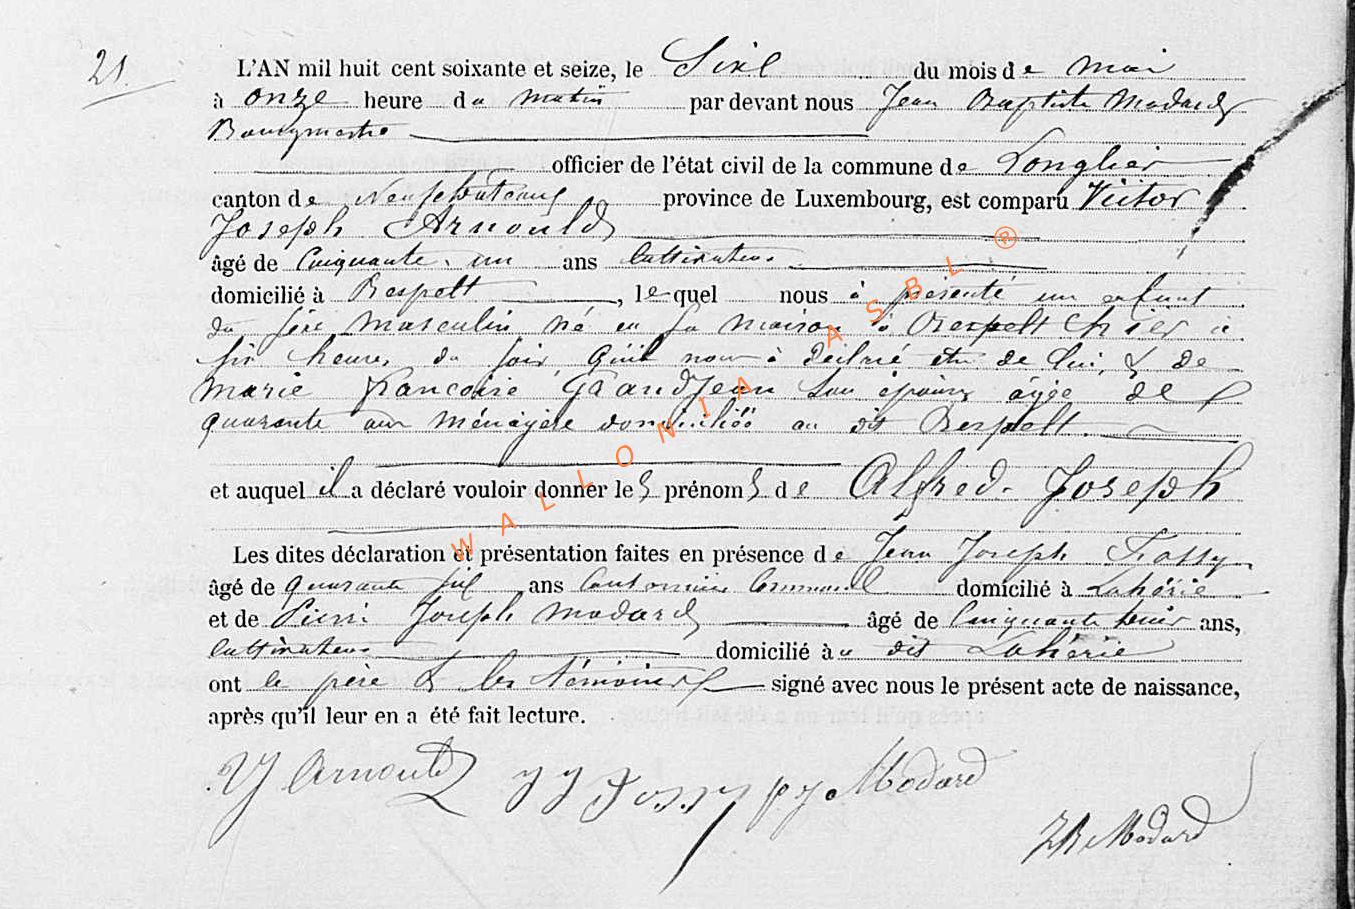 21.
L'AN mil huit cent soixante et seize, le Six du mois de mai
à onze heure du matin par devant nous Jean Baptiste Modard
Bourgmestre
officier de l'état civil de la commune de Longlier
canton de Neufchâteau province de Luxembourg, est comparu Victor
Joseph Arnould
âgé de Cinquante un ans Cultivateur
domicilié à Respelt, lequel nous à présenté un enfant
du sexe masculin né en sa maison à Respelt hier à
six heures du soir qu'il nous à déclaré être de lui, & de
Marie Françoise Grandjean Son épouse âgée de
quarante ans ménagère domiciliée au dit Respelt.
et auquel il a déclaré vouloir donner les prénoms de Alfred Joseph
Les dites déclaration et présentation faites en présence de Jean Joseph
âgé de quarante six ans Cantonnier Communal domicilié à Lahérie
et de Pierre Joseph Modard âgé de Cinquante ans,
Cultivateur domicilié au dit Lahérie
ont le père & les témoins signé avec nous le présent acte de naissance,
après qu'il leur en a été fait lecture.
VJ Arnould JJ PJ Modard
JB Modard
WALLONIA ASBL ®